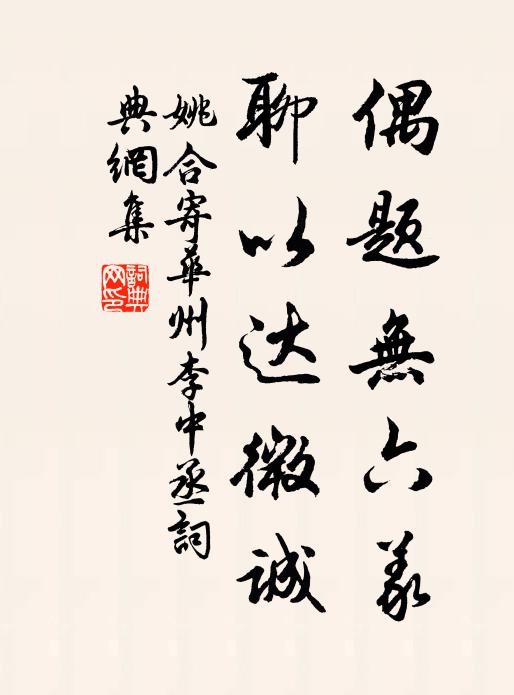 偶题無六义
聊以达微诚
姚合寄華州李中丞詞
典網集
詞典
网印